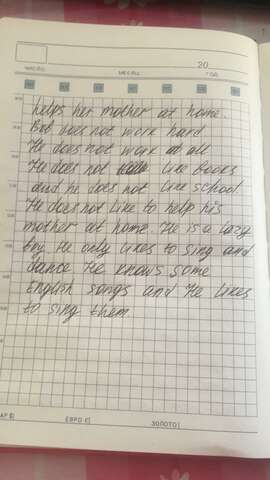 20
ЧИСЛО
МЕСЯЦ
ГОД
helps her mother at home.
But does not work hard
He does not work at all
He does not like books
and he does not like school
He does not like to help his
mother at home. He is a lazy
boy. He only likes to sing and
dance He knows some
English songs and He likes
to sing them
ЕВРО €|
ЗОЛОТО|